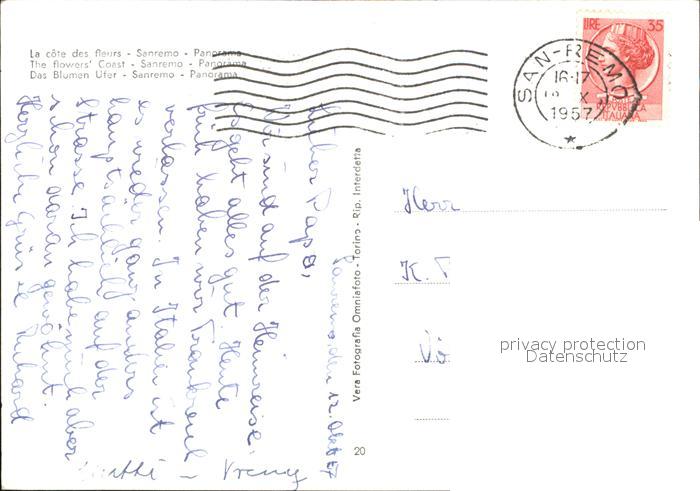 La côte des fleurs - Sanremo - Panorama
The flowers' Coast - Sanremo - Panorama
Das Blumen Ufer - Sanremo - Panorama
LIRE 35
REPVBBLICA
ITALIANA
SAN-REMO
16-17
X
1957
Sanremo, den 12. Okt 57
Lieber Papa,
Wir sind auf der Heimreise.
Es geht alles gut. Heute
früh haben wir Frankreich
verlassen. In Italien ist
es wieder ganz anders
hauptsächlich auf der
Strasse. Ich habe mich aber
schon daran gewöhnt.
Herzliche Grüsse Richard
- Vreny
Vera Fotografia Omniafoto - Torino - Rip. Interdetta
20
Herr
K.
privacy protection
Datenschutz